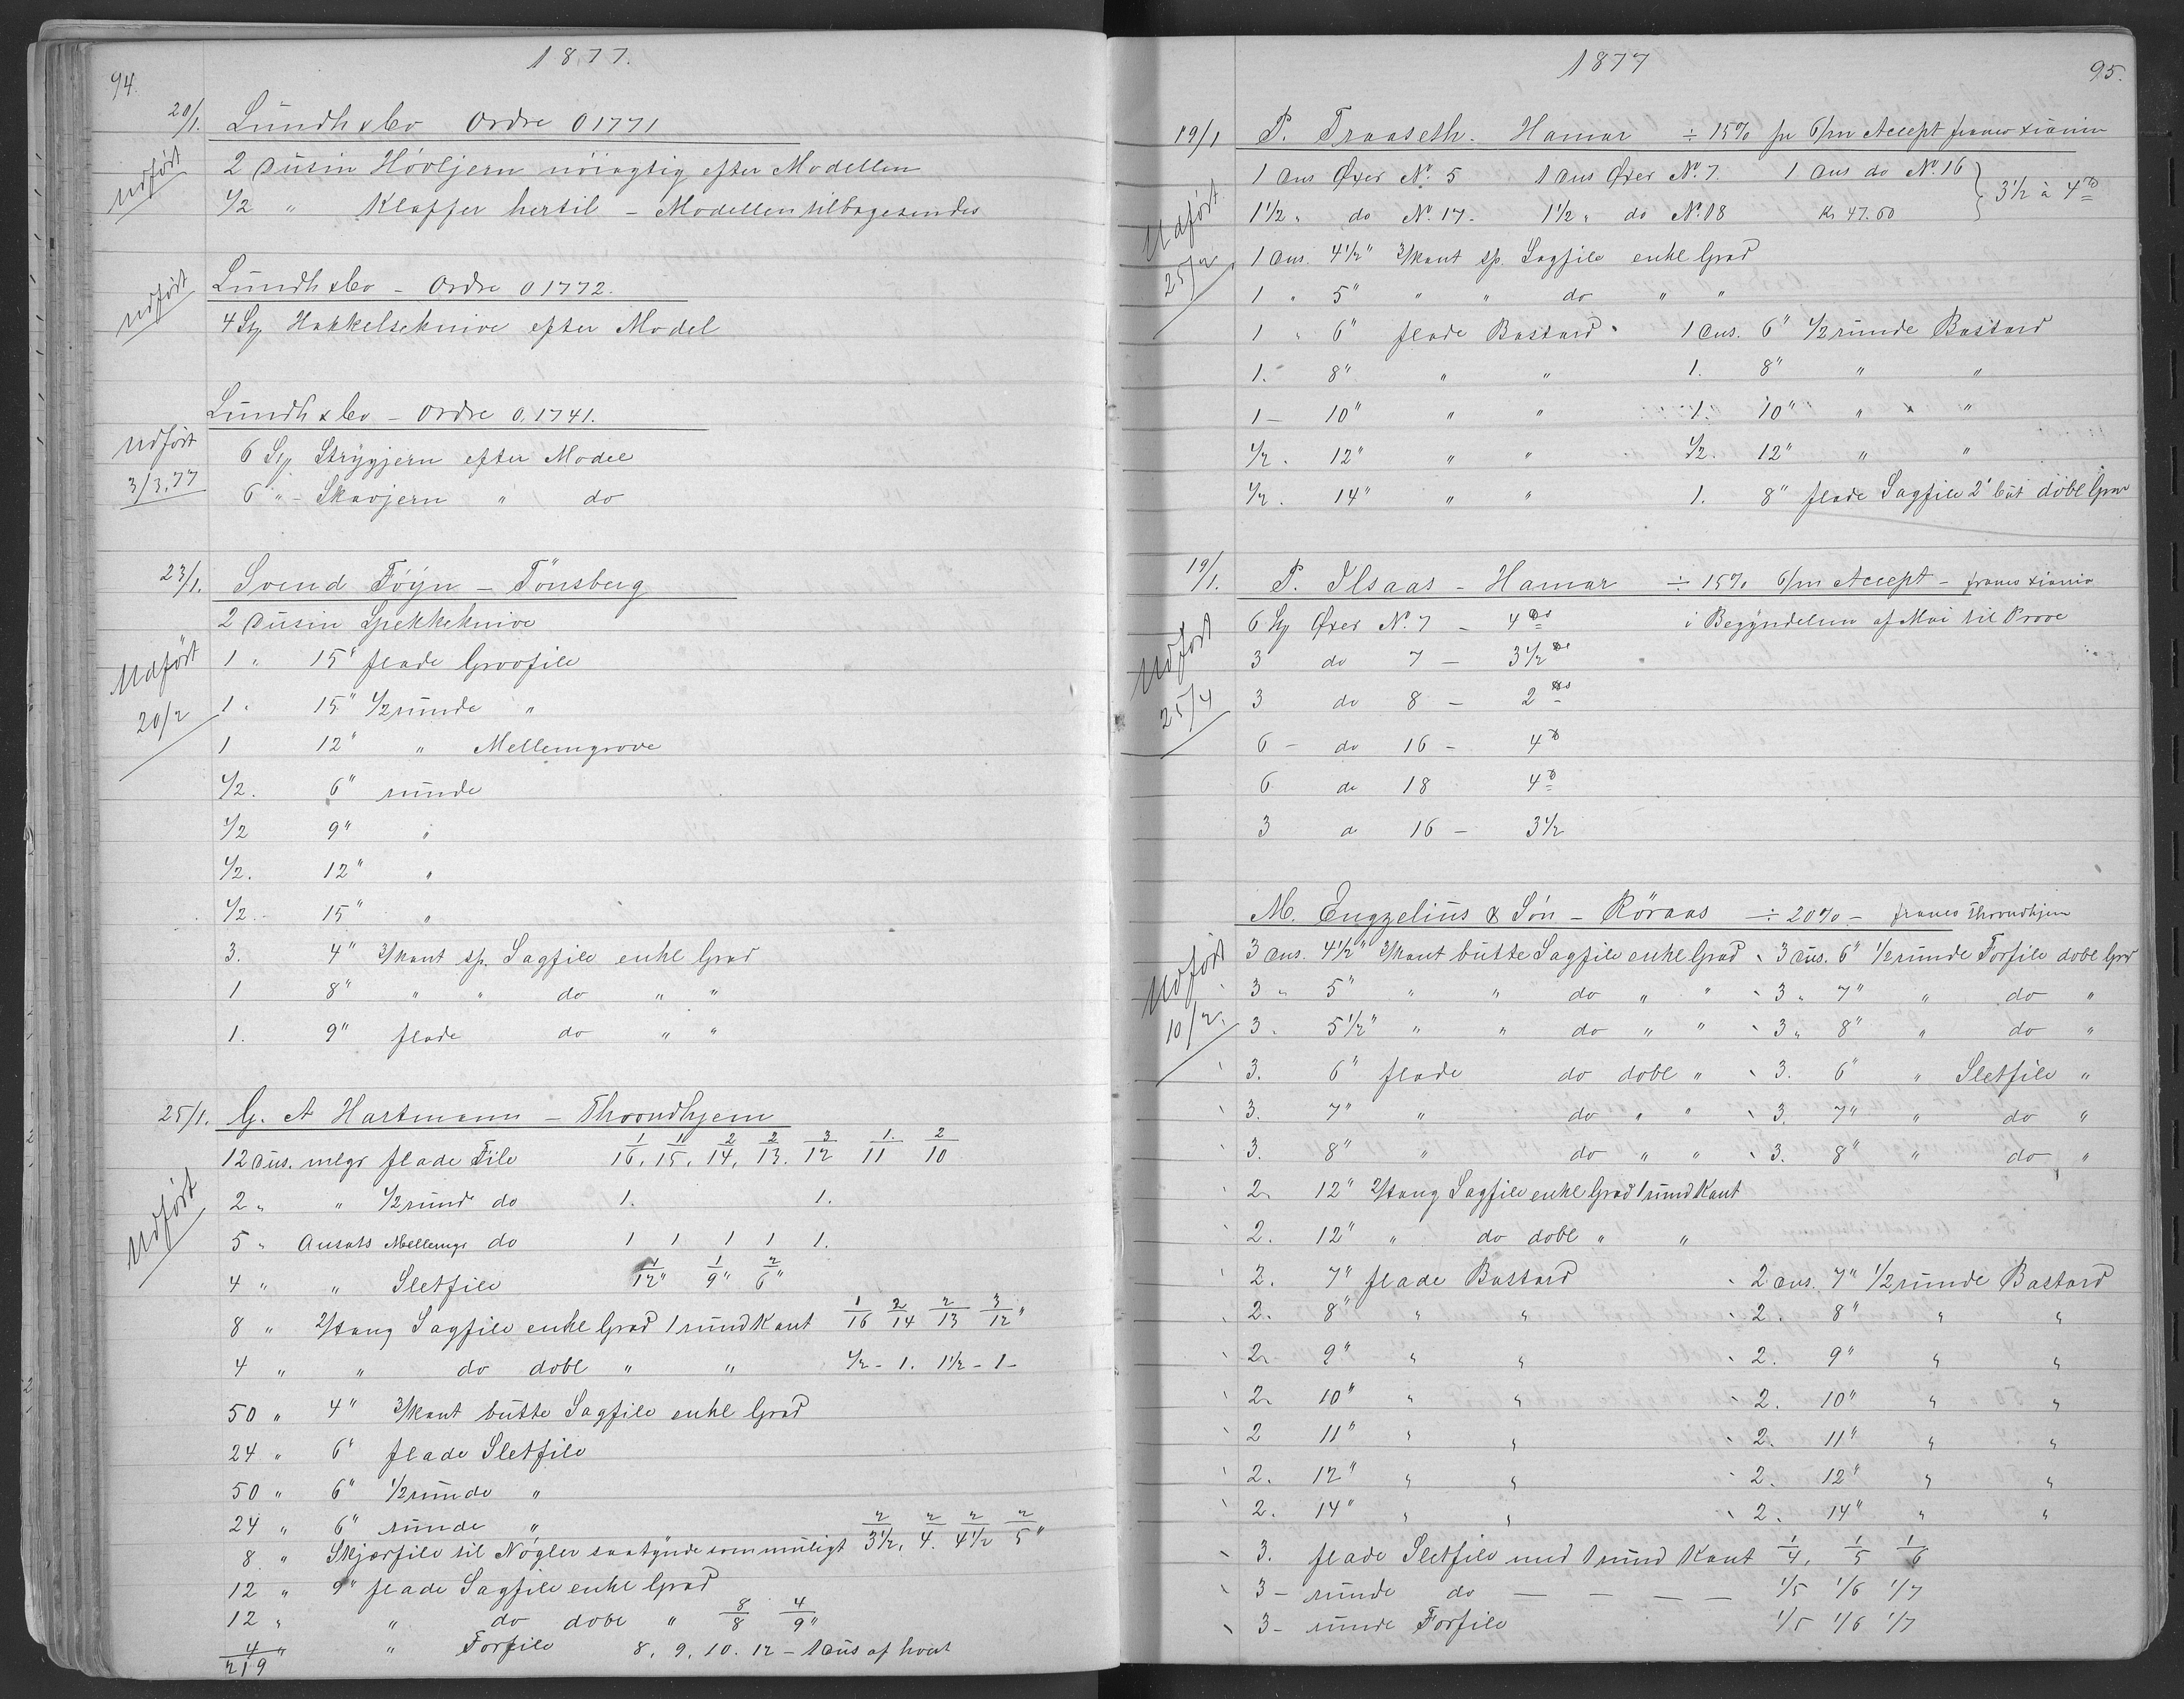 1877.
94.
20/1. Lundh & Co Ordre 01771
Udført
2 Dusin Høvljern nöiagtig efter Modellen
1/2 " Klaffer hertil - Modellen tilbagesendes
Udført
Lundh & Co - Ordre 01772.
4 Stk Hakkelseknive efter Model
Lundh & Co - Ordre 0.1741.
Udført 3/3.77
6 Stk Strygjern efter Model
6 " - Skavjern " do
23/1. Svend Föyn - Tönsberg
2 Dusin Spekkeknive
Udført 20/2
1 " 15" flade Grovfile
1 " 15" 1/2 runde "
1 12" " Mellemgrove
1/2. 6" runde
1/2 9" "
1/2. 12" "
1/2. - 15" "
3. 4" 3/kant sp. Sagfile enkl Grad
1 8" " " do " "
1. 9" flade do " "
25/1. G. A Hartmann - Throndhjem
12 dus. mlgr flade File 1/16, 1/15, 2/14, 2/13. 3/12 1/11 2/10
Udført
2 " " 1/2 rund do 1. 1.
5 " Ansats Mellemgr do 1 1 1 1 1.
4 " " Sletfile 1/12" 1/9" 2/6"
8 " 2/tang Sagfile enkl Grad 1 rund Kant 1/16 2/14 2/13 3/12"
4 " " do dobl " " 1/2 - 1. 1 1/2 - 1 -
50 " 4" 3/kant butte Sagfile enkl Grad
24 " 6" flade Sletfile
50 " 6" 1/2 runde "
24 " 6" runde "
8 " Skjærfile til Nøgler saa tynde som muligt 2/3 1/2, 2/4. 2/4 1/2 2/5"
12 " 9" flade Sagfile enkl Grad
12 " " do dobl " 8/8 4/9"
4 " " Forfile 8, 9, 10. 12 - 1 Dus af hvert
219
1877
95.
19/1 P. Traaseth. Hamar ÷ 15% pr 6/m Accept franco Xiania
1 Dus Øxer No. 5 1 Dus Øxer No. 7 1 Dus do No. 16
1 1/2 " do No. 17. 1 1/2 " do No. 18 Kr 47.60 } 3 1/2 à 4
Udført 25/2
1 Dus. 4 1/2" 3/kant sp. Sagfile enkl Grad
1 " 5" " " do " "
1 " 6" flade Bastard 1 Dus. 6" 1/2 runde Bastard
1. 8" " " 1. 8" " "
1 - 10" " " 1. 10" " "
1/2. 12" " " 1/2. 12" " "
1/2. 14" " " 1. 8" flade Sagfile 2' Cut dobl Grad
19/1. P. Ilsaas - Hamar ÷ 15% 6/m Accept - franco Xiania
6 Stk Øxer No. 7 - 4 i Begyndelsen af Mai til Prove
Udført 25/4
3 do 7 - 3 1/2
3 do 8 - 2
6 - do 16 - 4
6 do 18 4
3 d 16 - 3 1/2
M. Engzelius & Sön - Röraas ÷ 20% - franco Throndhjem
Udført 10/2.
3 Dus. 4 1/2" 3/kant butte Sagfile enkl Grad 3 Dus. 6" 1/2 runde Forfile dobl Grad
3 " 5" " " do " " 3 " 7" " do "
3. 5 1/2" " " do " " 3 " 8" " do "
3. 6" flade do dobl " 3. 6" " Sletfile "
3. 7" " do " " 3. 7" " do "
3. 8" " do " " 3. 8" " do "
2 " 12" 2/tang Sagfile enkl Grad 1 rund Kant
2. 12" " do dobl " "
2. 7" flade Bastard 2 Dus. 7" 1/2 runde Bastard
2. 8" " " 2. 8" " "
2. 9" " " 2. 9" " "
2. 10" " " 2. 10" " "
2 11" " " 2. 11" " "
2. 12" " " 2. 12" " "
2. 14" " " 2. 14" " "
3. flade Sletfile med 1 rund Kant 1/4, 1/5 1/6
3 - runde do — — — — 1/5 1/6 1/7
3 - runde Forfile 1/5 1/6 1/7